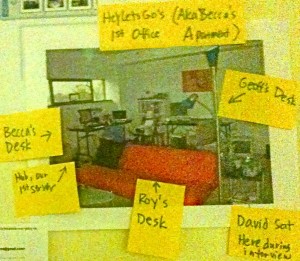 HeyLetsGo's (Aka Becca's
1st Office Apartment)
Geoff's Desk
Becca's
Desk
Hub, our
1st server
Roy's
Desk
David Sat
Here during
interview